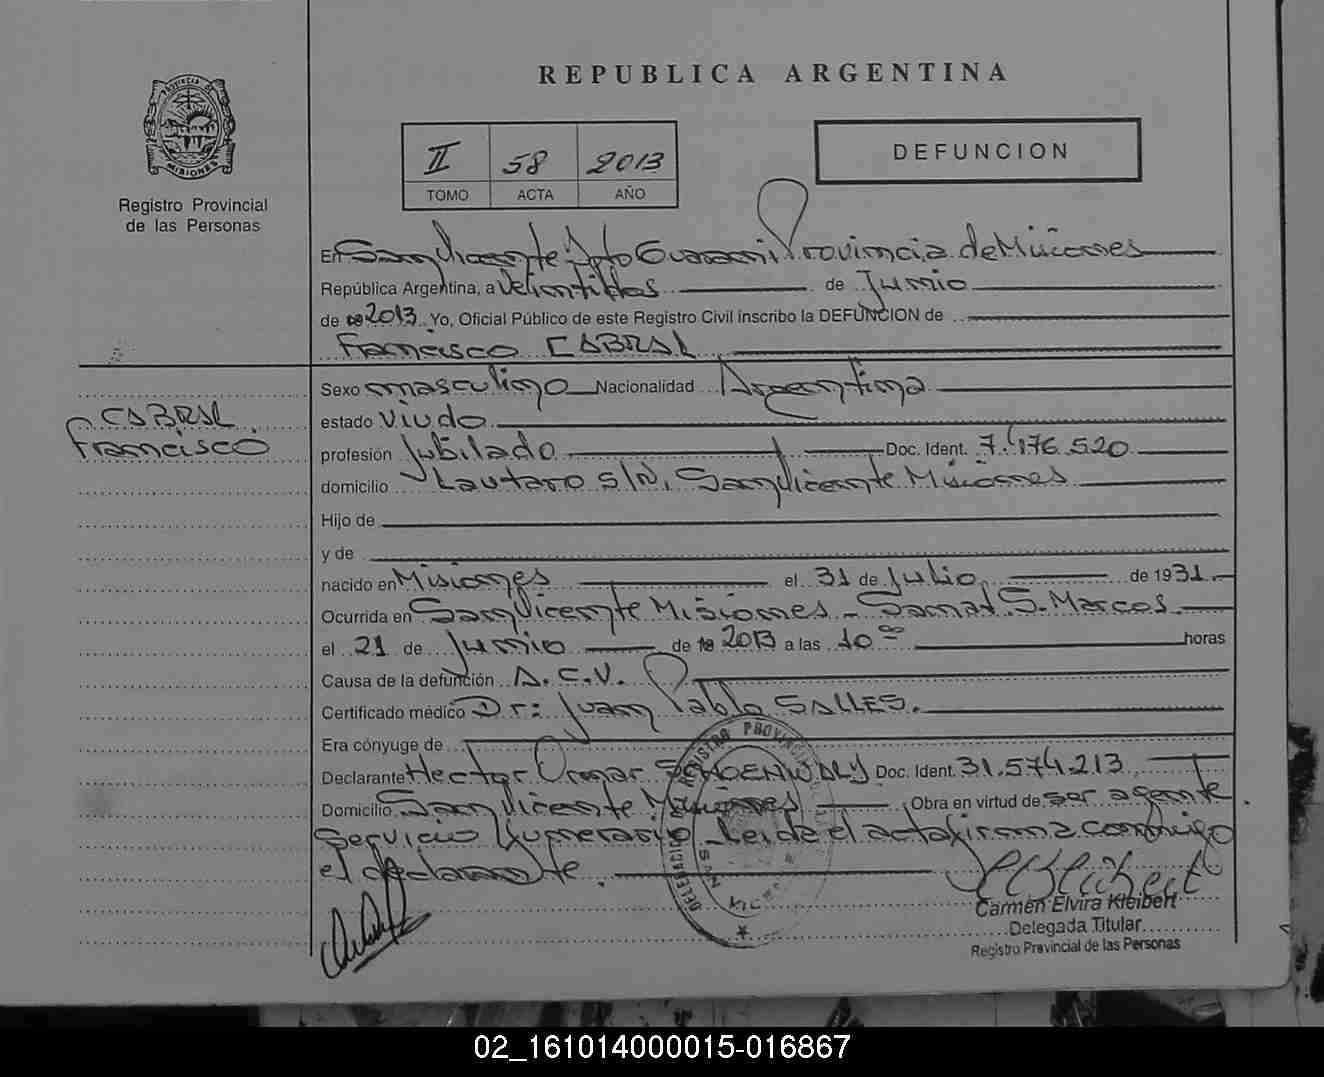 REPUBLICA ARGENTINA
PROVINCIA DE
MISIONES
Registro Provincial
de las Personas
II 58 2013
TOMO ACTA AÑO
DEFUNCION
En San Vicente Dpto Guarani Provincia de Misiones
República Argentina, a Veintidos de Junio
de 19 2013 Yo, Oficial Público de este Registro Civil inscribo la DEFUNCION de
Francisco CABRAL
CABRAL
Francisco
Sexo masculino Nacionalidad Argentina
estado Viudo
profesión Jubilado Doc. Ident. 7.176.520
domicilio Lautaro S/N, San Vicente Misiones
Hijo de
y de
nacido en Misiones el 31 de Julio de 1931
Ocurrida en San Vicente Misiones - Sanat S. Marcos
el 21 de Junio de 19 2013 a las 10 00 horas
Causa de la defunción A.C.V.
Certificado médico Dr: Juan Pablo SALLES.
Era cónyuge de
Declarante Hector Omar Doc. Ident. 31.574.213
Domicilio San Vicente Misiones Obra en virtud de ser agente
servicio funerario Leida el acta firma conmigo
el declarante.
DELEGACIO REGISTRO PROVINCIAL
SAN VICENTE
Carmen Elvira Kleibert
Delegada Titular
Registro Provincial de las Personas
02_161014000015-016867